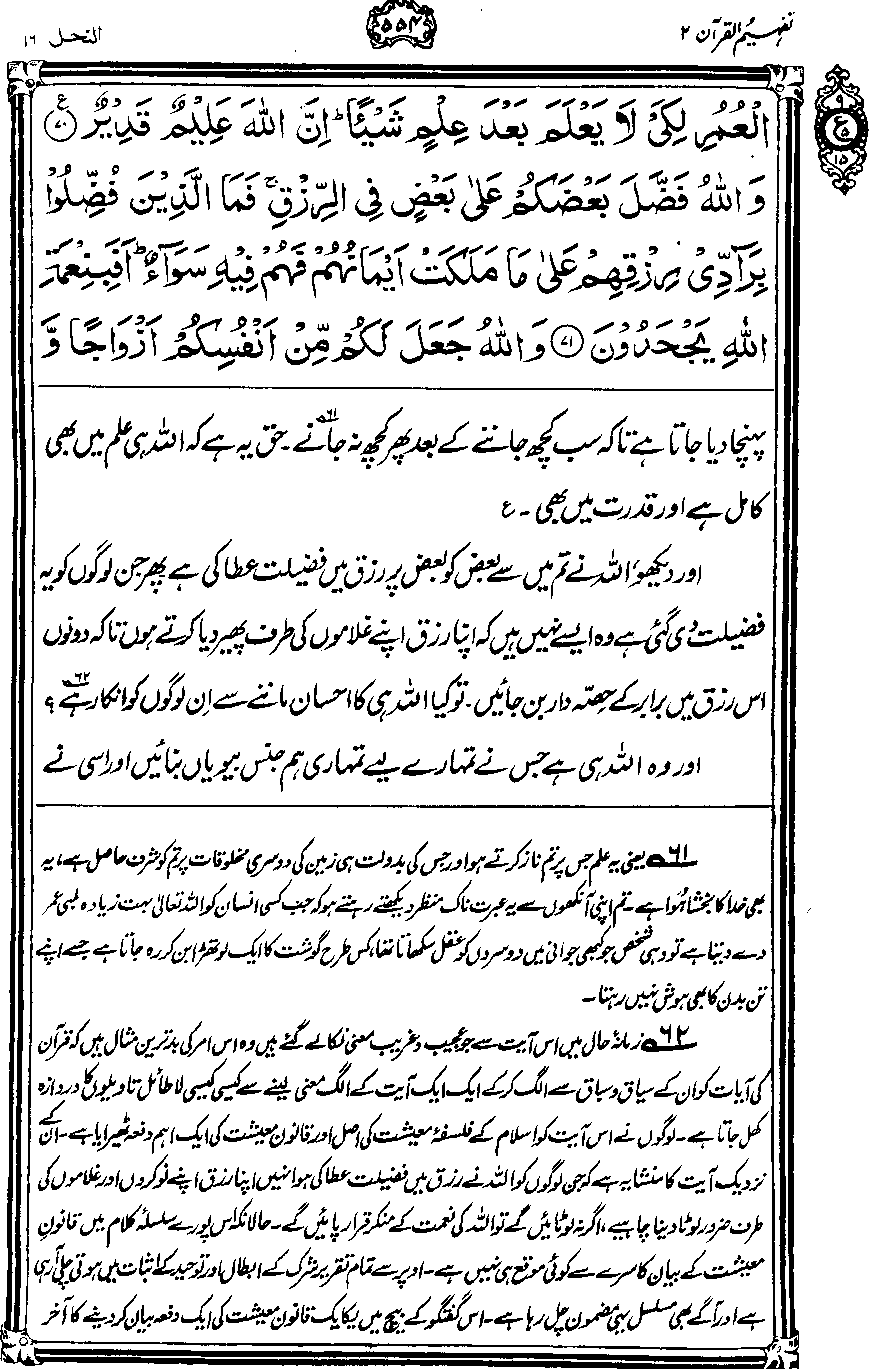 تفہیم القرآن ۲
۵۵۴
النحل ۱۶
ع
۹
۵
۱۵
الْعُمُرِ لِكَيْ لَا يَعْلَمَ بَعْدَ عِلْمٍ شَيْئًا ؕ اِنَّ اللّٰهَ عَلِيْمٌ قَدِيْرٌ ﴿۷۰﴾ ع
وَاللّٰهُ فَضَّلَ بَعْضَكُمْ عَلٰى بَعْضٍ فِى الرِّزْقِ ۚ فَمَا الَّذِيْنَ فُضِّلُوْا
بِرَآدِّيْ رِزْقِهِمْ عَلٰى مَا مَلَكَتْ اَيْمَانُهُمْ فَهُمْ فِيْهِ سَوَآءٌ ؕ اَفَبِنِعْمَةِ
اللّٰهِ يَجْحَدُوْنَ ﴿۷۱﴾ وَاللّٰهُ جَعَلَ لَكُمْ مِّنْ اَنْفُسِكُمْ اَزْوَاجًا وَّ
پہنچا دیا جاتا ہے تاکہ سب کچھ جاننے کے بعد پھر کچھ نہ جانے۶۱۔ حق یہ ہے کہ اللہ ہی علم میں بھی
کامل ہے اور قدرت میں بھی۔ ع
اور دیکھو، اللہ نے تم میں سے بعض کو بعض پر رزق میں فضیلت عطا کی ہے پھر جن لوگوں کو یہ
فضیلت دی گئی ہے وہ ایسے نہیں ہیں کہ اپنا رزق اپنے غلاموں کی طرف پھیر دیا کرتے ہوں تاکہ دونوں
اس رزق میں برابر کے حصہ دار بن جائیں۔ تو کیا اللہ ہی کا احسان ماننے سے اِن لوگوں کو انکار ہے۶۲؟
اور وہ اللہ ہی ہے جس نے تمہارے لیے تمہاری ہم جنس بیویاں بنائیں اور اسی نے
۶۱ یعنی یہ علم جس پر تم ناز کرتے ہو اور جس کی بدولت ہی زمین کی دوسری مخلوقات پر تم کو شرف حاصل ہے، یہ
بھی خدا کا بخشا ہُوا ہے۔ تم اپنی آنکھوں سے یہ عبرت ناک منظر دیکھتے رہتے ہو کہ جب کسی انسان کو اللہ تعالیٰ بہت زیادہ لمبی عمر
دے دیتا ہے تو وہی شخص جو کبھی جوانی میں دوسروں کو عقل سکھاتا تھا، کس طرح گوشت کا ایک لوتھڑا بن کر رہ جاتا ہے جسے اپنے
تن بدن کا بھی ہوش نہیں رہتا۔
۶۲ زمانۂ حال میں اس آیت سے جو عجیب و غریب معنی نکالے گئے ہیں وہ اس امر کی بدترین مثال ہیں کہ قرآن
کی آیات کو ان کے سیاق و سباق سے الگ کر کے ایک ایک آیت کے الگ معنی لینے سے کیسی کیسی لا طائل تاویلوں کا دروازہ
کھل جاتا ہے۔ لوگوں نے اس آیت کو اسلام کے فلسفۂ معیشت کی اصل اور قانون معیشت کی ایک اہم دفعہ ٹھیرایا ہے۔ اُن کے
نزدیک آیت کا منشا یہ ہے کہ جن لوگوں کو اللہ نے رزق میں فضیلت عطا کی ہو انہیں اپنا رزق اپنے نوکروں اور غلاموں کی
طرف ضرور لوٹا دینا چاہیے، اگر نہ لوٹائیں گے تو اللہ کی نعمت کے منکر قرار پائیں گے۔ حالانکہ اس پورے سلسلۂ کلام میں قانونِ
معیشت کے بیان کا سرے سے کوئی موقع ہی نہیں ہے۔ اوپر سے تمام تقریر شرک کے ابطال اور توحید کے اثبات میں ہوتی چلی آ رہی
ہے اور آگے بھی مسلسل یہی مضمون چل رہا ہے۔ اس گفتگو کے بیچ میں یکایک قانون معیشت کی ایک دفعہ بیان کر دینے کا آخر